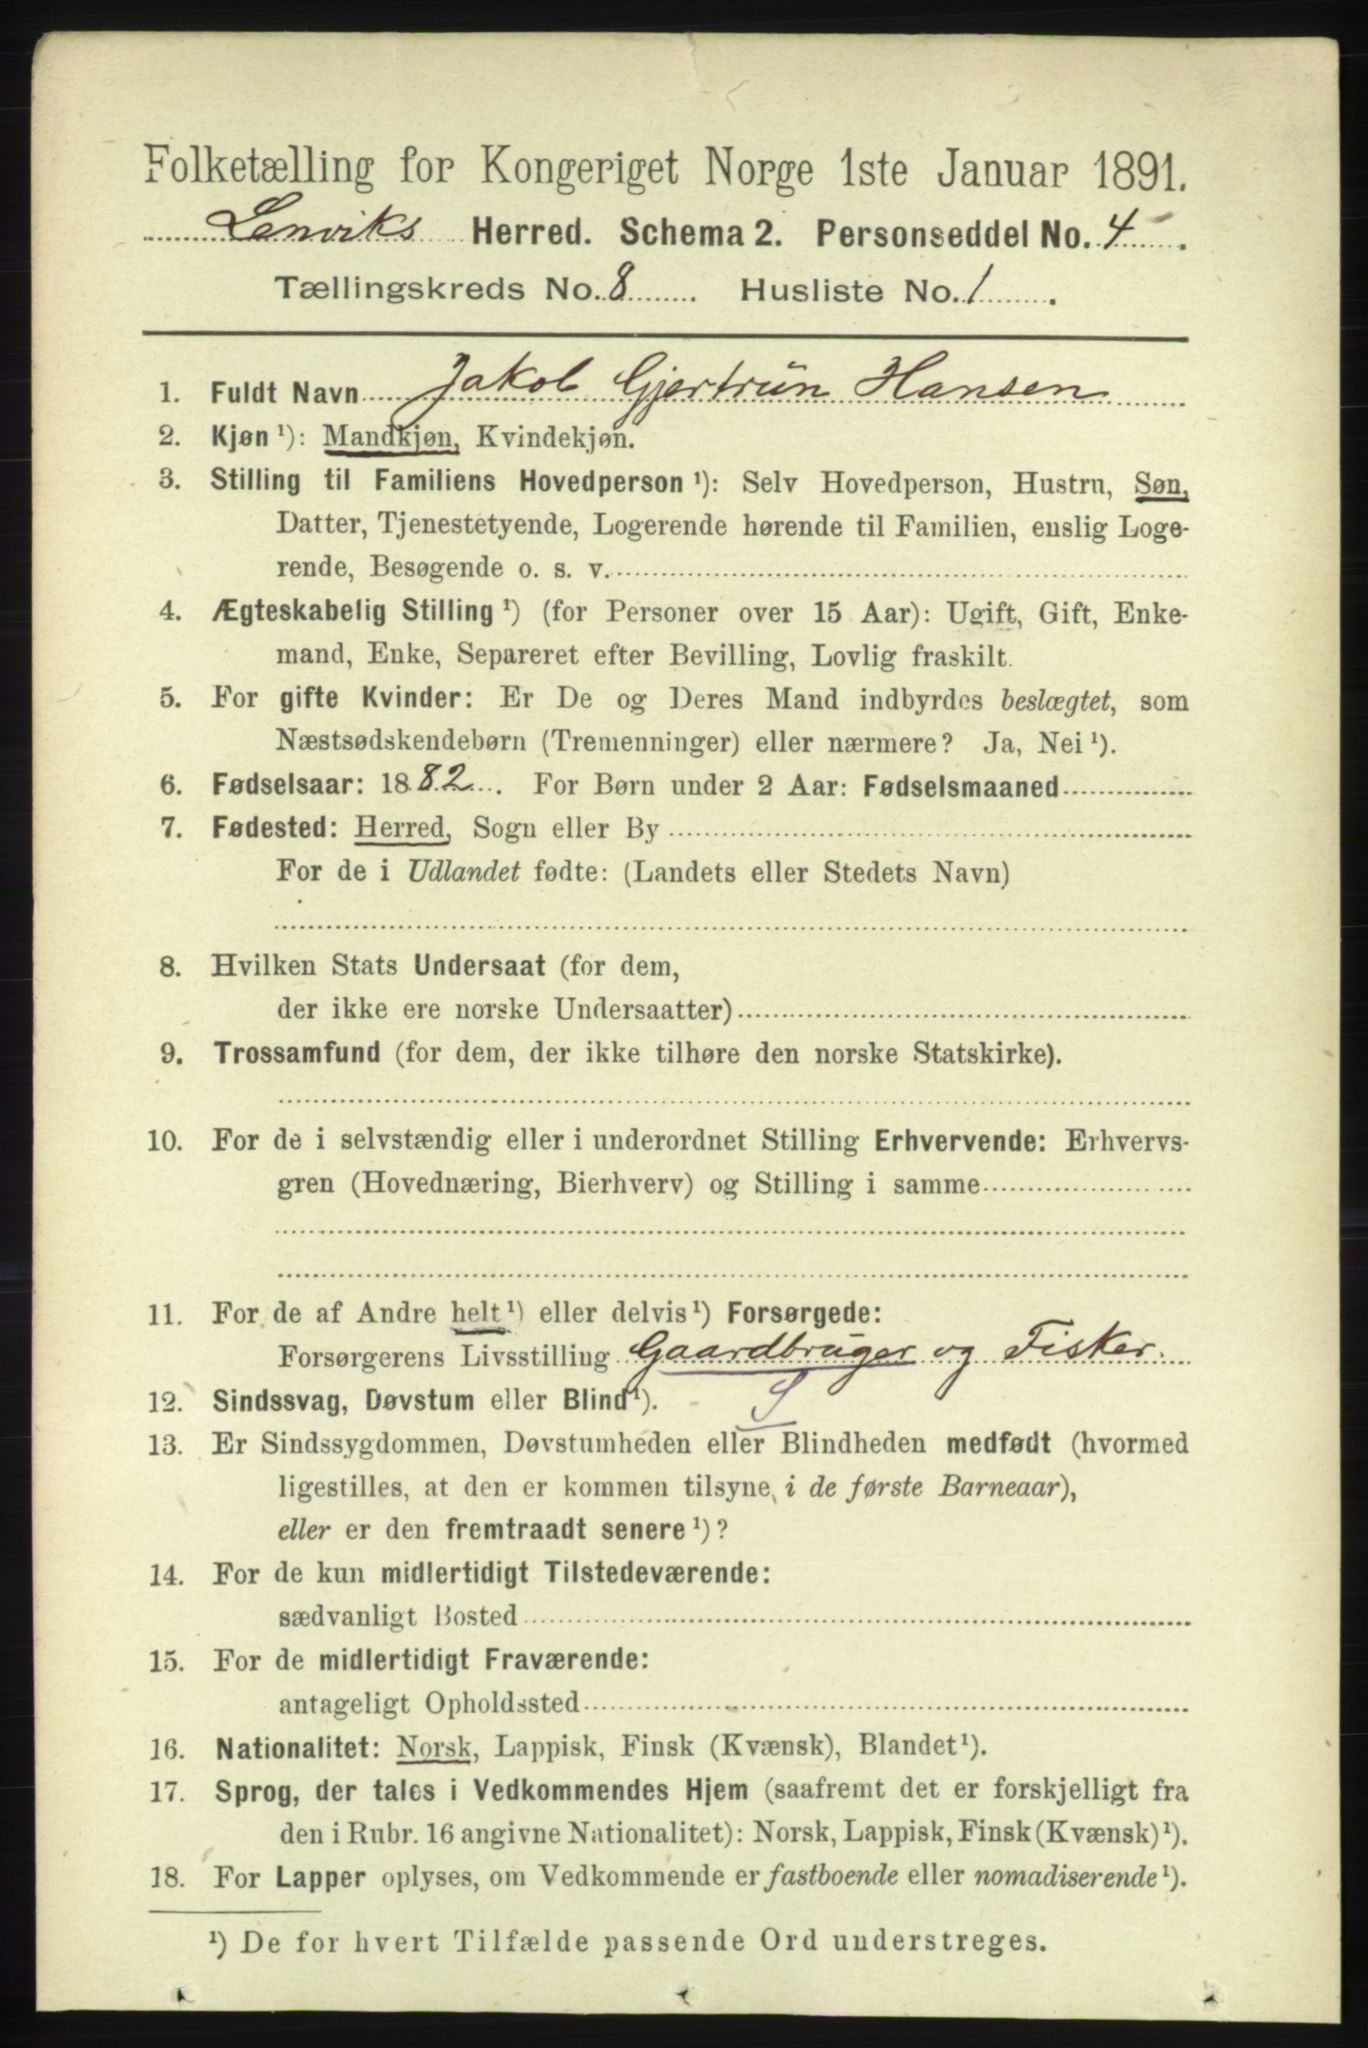 Folketælling for Kongeriget Norge 1ste Januar 1891.
Lenviks Herred. Schema 2. Personseddel No. 4.
Tællingskreds No. 8. Husliste No. 1.
1. Fuldt Navn Jakob Gjertrün Hansen
2. Kjøn ¹): Mandkjøn, Kvindekjøn.
3. Stilling til Familiens Hovedperson ¹): Selv Hovedperson, Hustru, Søn,
Datter, Tjenestetyende, Logerende hørende til Familien, enslig Loge-
rende, Besøgende o. s. v.
4. Ægteskabelig Stilling ¹) (for Personer over 15 Aar): Ugift, Gift, Enke-
mand, Enke, Separeret efter Bevilling, Lovlig fraskilt.
5. For gifte Kvinder: Er De og Deres Mand indbyrdes beslægtet, som
Næstsødskendebørn (Tremenninger) eller nærmere? Ja, Nei ¹).
6. Fødselsaar: 1882. For Børn under 2 Aar: Fødselsmaaned
7. Fødested: Herred, Sogn eller By
For de i Udlandet fødte: (Landets eller Stedets Navn)
8. Hvilken Stats Undersaat (for dem,
der ikke ere norske Undersaatter)
9. Trossamfund (for dem, der ikke tilhøre den norske Statskirke).
10. For de i selvstændig eller i underordnet Stilling Erhvervende: Erhvervs-
gren (Hovednæring, Bierhverv) og Stilling i samme
11. For de af Andre helt ¹) eller delvis ¹) Forsørgede:
Forsørgerens Livsstilling Gaardbruger og Fisker.
12. Sindssvag, Døvstum eller Blind ¹). S
13. Er Sindssygdommen, Døvstumheden eller Blindheden medfødt (hvormed
ligestilles, at den er kommen tilsyne i de første Barneaar),
eller er den fremtraadt senere ¹)?
14. For de kun midlertidigt Tilstedeværende:
sædvanligt Bosted
15. For de midlertidigt Fraværende:
antageligt Opholdssted
16. Nationalitet: Norsk, Lappisk, Finsk (Kvænsk), Blandet ¹).
17. Sprog, der tales i Vedkommendes Hjem (saafremt det er forskjelligt fra
den i Rubr. 16 angivne Nationalitet): Norsk, Lappisk, Finsk (Kvænsk) ¹).
18. For Lapper oplyses, om Vedkommende er fastboende eller nomadiserende ¹).
¹) De for hvert Tilfælde passende Ord understreges.